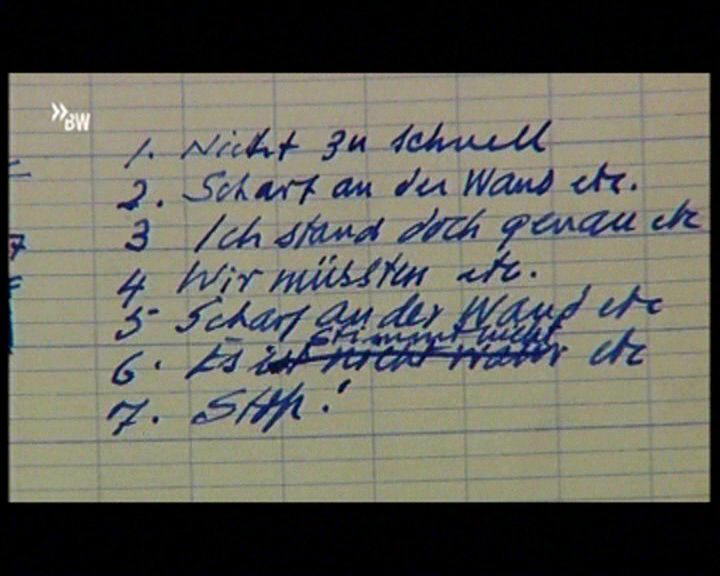 »BW
1. Nicht zu schnell
2. Scharf an der Wand etc.
3 Ich stand doch genau etc
4 Wir müssten etc.
5 Scharf an der Wand etc
stimmt nicht
6. Es ist nicht wahr etc
7. Stop!